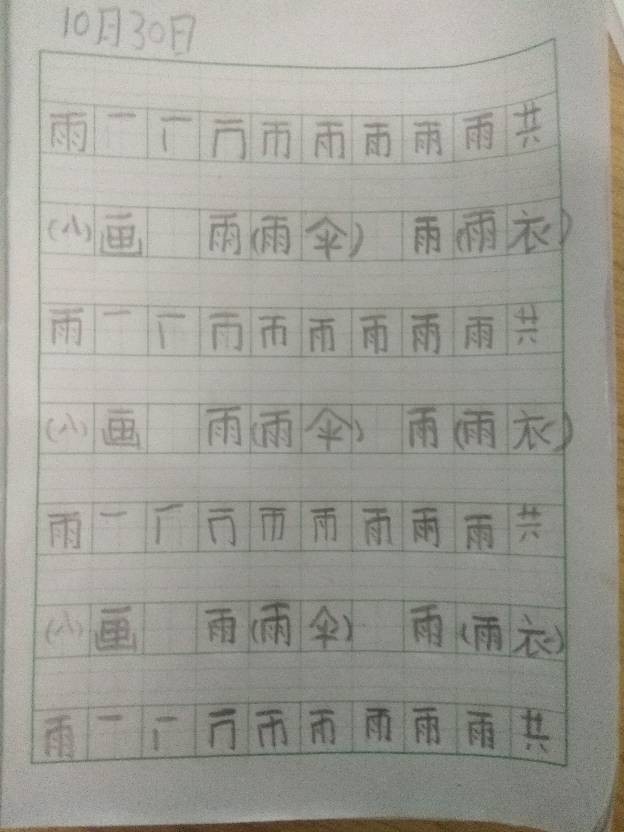 10月30日
雨 一 厂 冂 币 雨 雨 雨 雨 共
(八)画 雨(雨伞) 雨(雨衣)
雨 一 厂 冂 币 雨 雨 雨 雨 共
(八)画 雨(雨伞) 雨(雨衣)
雨 一 厂 冂 币 雨 雨 雨 雨 共
(八)画 雨(雨伞) 雨(雨衣)
雨 一 厂 冂 币 雨 雨 雨 雨 共